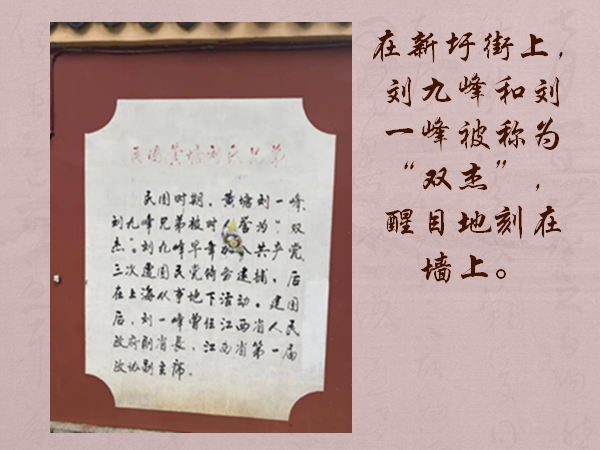 民国黄塘刘氏兄弟
民国时期，黄塘刘一峰、
刘九峰兄弟被时人誉为“双
杰”。刘九峰早年加入共产党，
三次遭国民党特务逮捕，后
在上海从事地下活动。建国
后，刘一峰曾任江西省人民
政府副省长，江西省第一届
政协副主席。
在新圩街上，
刘九峰和刘
一峰被称为
“双杰”，
醒目地刻在
墙上。